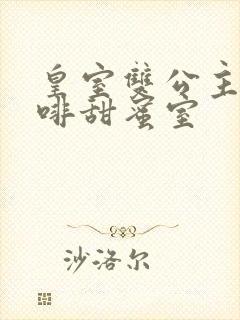 皇室雙公主
啡甜蜜室
沙洛尔